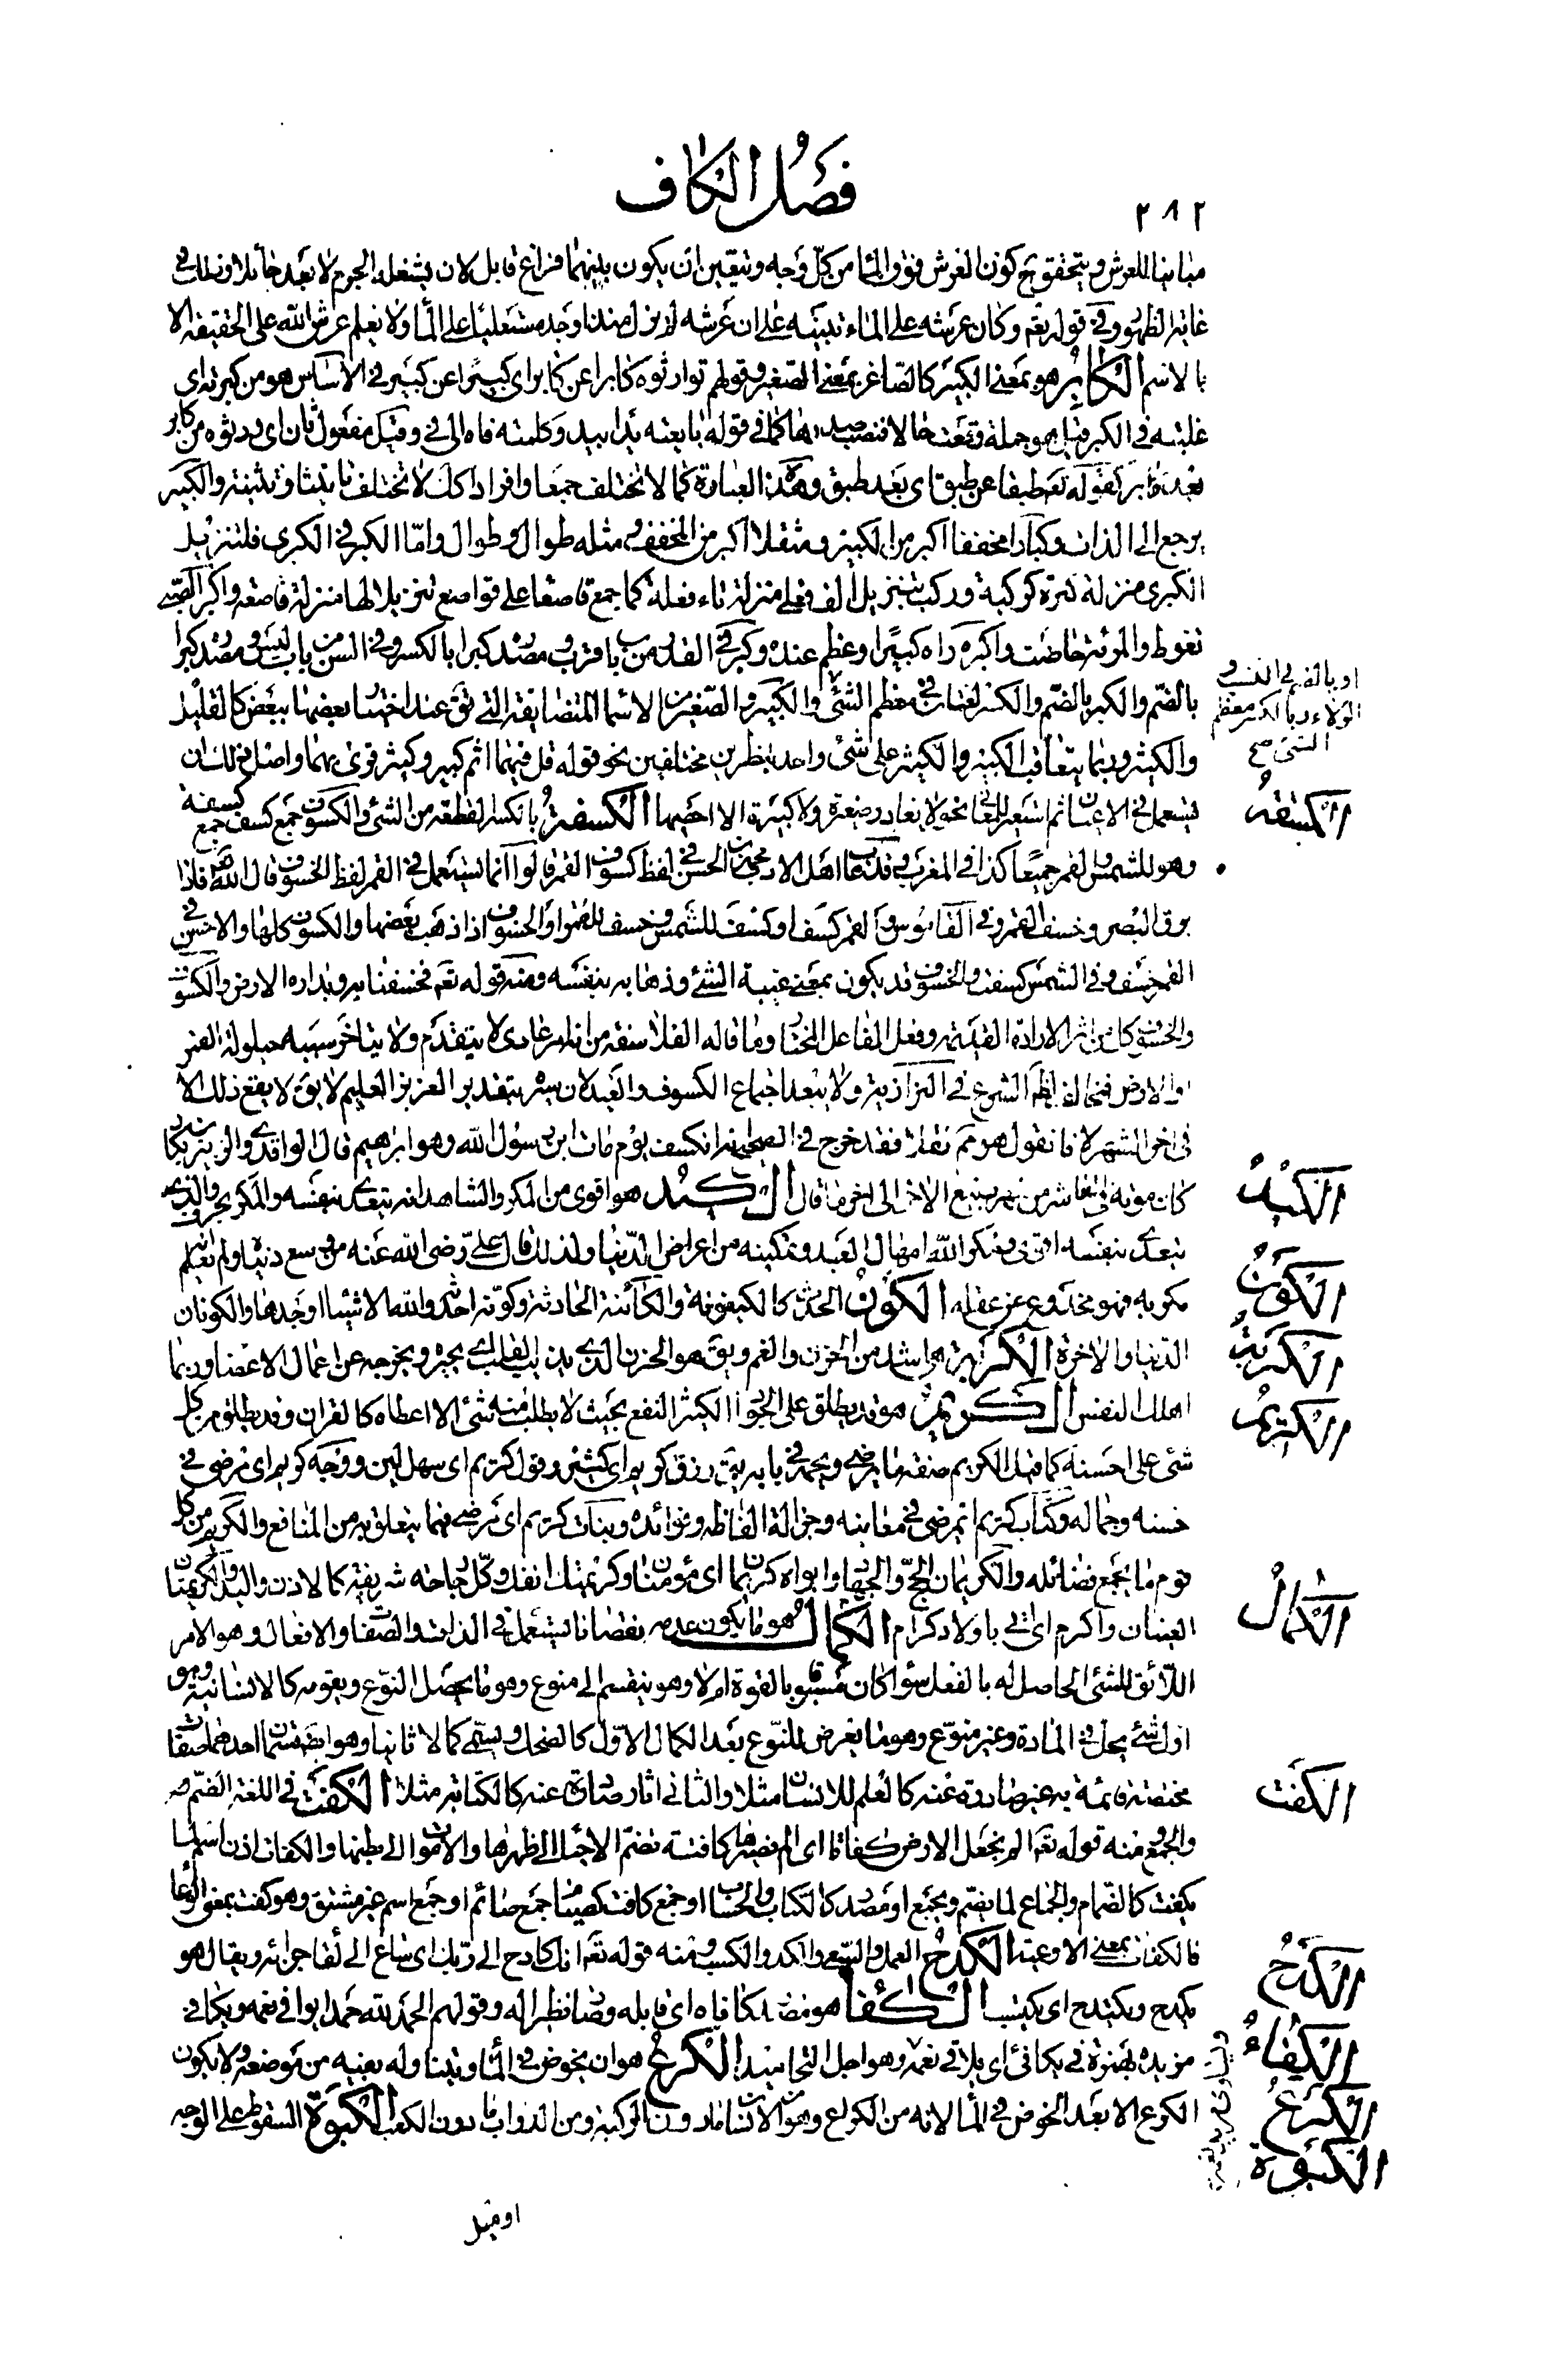 فصل الكاف
٢٨٢
مباينا للعرش ويتحقق ح كون العرش فوق الماء من كل وجه ويتعين ان يكون بينهما فراغ قابل لان يشغله الجرم لا بعد
غاية الظهور وفي قوله تعالى وكان عرشه على الماء تنبيه على ان عرشه لم يزل منذ اوجده مستعليا على الماء ولا يعلم عرش الله على الحقيقة الا
بالاسم الكابر هو بمعنى الكبير كالصاغر بمعنى الصغير وقولهم توارثوه كابرا عن كابر اي كبيرا عن كبير في الاساس هو من كبرته اي
غلبته في الكبر قيل هو جملة وقعت حالا فنصب صدرها كما في قوله بايعته يدا بيد وكلمته فاه الى في وقيل مفعول ثان اي ورثوه من كابر
بعد كابر كقوله تعالى طبقا عن طبق اي بعد طبق وهذه العبارة كما لا تختلف جمعا وافرادا كذلك لا تختلف تانيثا وتثنية والكبير
يرجع الى الذات وكبارا مخففا اكبر من الكبير ومثقلا اكبر من المخفف ومثله طوال وطوال واما الكبر في الكبرى فلتنزيل
الكبرى منزلة كبرة كركبة وركب بتنزيل الف فعلى منزلة تاء فعلة كما جمع قاصعا على قواصع تنزيلا لها منزلة قاصعة واكبر الصبي
تغوط والمرئة حاضت واكبره راه كبيرا وعظم عنده وكبر في القدر من باب قرب ومصدره كبرا بالكسر وفي السن من باب لبس ومصدره كبرا
بالضم والكبر بالضم والكسر لغتان في معظم الشئ والكبير والصغير من الاسماء المتضايفة التي تق عند اختيار بعضها ببعض كالقليل
والكثير وربما يتعاقب الكبير والكثير على شئ واحد بنظرين مختلفين نحو قوله قل فيهما اثم كبير وكثير قرئ بهما واصل ذلك ان
يستعمل في الاعيان ثم استعير للمعاني نحو لا يغادر صغيرة ولا كبيرة الا احصيها الكسفة بالكسر القطعة من الشئ والكسوف جمع كسف جمع كسفة
وهو للشمس والقمر جميعا كذا في المغرب وقد عاب اهل الادب محمد بن الحسن في لفظ كسوف القمر قالوا انما يستعمل في القمر لفظ الخسوف قال الله تعالى فاذا
برق البصر وخسف القمر وفي القاموس والقمر كسف او كسف للشمس وخسف للقمر او الخسوف اذا ذهب بعضها والكسوف كلها والاحسن في
القمر خسف وفي الشمس كسفت والخسوف قد يكون بمعنى غيبة الشئ وذهابه بنفسه ومنه قوله تعالى فخسفنا به وبداره الارض والكسوف
والخسوف كان من اثر الارادة القديمة وفعل الفاعل المختار وما قاله الفلاسفة من انه امر عادي لا يتقدم ولا يتاخر سببه حيلولة القمر
والارض فمخالف لظاهر الشرع ولا يبعد اجتماع الكسوف والعيد لان سره بتقدير العزيز العليم لا يق لا يقع ذلك الا
في اخر الشهر لانا نقول هو مم نقلا فقد خرج في الصحيح انها انكسف يوم مات ابن رسول الله وهو ابراهيم قال الواقدي والزبير بن بكار
كان موته في العاشر من شهر ربيع الاخر الى اخر ما قال الكيد هو اقوى من المكر والشاهد انه يتعدى بنفسه والمكر بحرف والذي
يتعدى بنفسه اقوى ومكر الله امهال العبد وتمكينه من اعراض الدنيا ولذلك قال علي رضى الله عنه من وسع دنياه ولم يعلم انه
مكر به فهو مخدوع عن عقله الكون الحدث كالكينونة والكائنة الحادثة وكونه احدثه والله الاشياء اوجدها والكونان
الدنيا والاخرة الكربة هو اشد من الحزن والغم ويق هو الحزن الذي يذيب القلب اي يحيره ويخرجه عن اعمال الاعضاء وربما
اهلك النفس الكريم هو قد يطلق على الجواد الكثير النفع بحيث لا يطلب منه شئ الا اعطاه كالقران وقد يطلق من كل
شئ على احسنه كما قيل الكريم صفة ما يرضى ويحمد في بابه يق رزق كريم اي كثير وقول كريم اي سهل لين ووجه كريم اي مرضي في
حسنه وجماله وكتاب كريم اي مرضي في معانيه وجزالة الفاظه وفوائده ونبات كريم اي مرضي فيما يتعلق به من المنافع والكريم من كل
قوم ما يجمع فضائله والكريمان الحج والجهاد وابواه كريمان اي مؤمنان وكريمتك انفك وكل جارحة شريفة كالاذن واليد والكريمتان
العينان واكرم اتى باولاد كرام الكمال هو ما يكون عدمه نقصانا يستعمل في الذات والصفات والافعال وهو الامر
اللائق للشئ الحاصل له بالفعل سواء كان مسبوقا بالقوة ام لا وهو ينقسم الى منوع وهو ما يحصل النوع ويقومه كالانسانية وهو
اول شئ يحل في المادة وغير منوع وهو ما يعرض للنوع بعد الكمال الاول كالضحك ويسمى كمالا ثانيا وهو ايضا قسمان احدهما صفات
مختصة قائمة به غير صادرة عنه كالعلم للانسان مثلا والثاني اثار صادرة عنه كالكتابة مثلا الكفت في اللغة الضم
والجمع ومنه قوله تعالى الم نجعل الارض كفاتا اي الم نصيرها كافتة تضم الاحياء الى ظهرها والاموات الى بطنها والكفات اذن اسم لما
يكفت كالضمام والجماع لما يضم ويجمع او مصدر كالكتاب والحساب او جمع كافت كصيام جمع صائم او جمع اسم غير مشتق وهو كفت بمعنى الوعاء
فالكفات بمعنى الاوعية الكدح العمل والسعي والكد والكسب ومنه قوله تعالى انك كادح الى ربك اي ساع الى لقاء جزائه ويقال هو
يكدح ويكتدح اي يكتسب الكفاء هو مصدر كافاه اي قابله وصار نظيرا له وقولهم الحمد لله حمدا يوافي نعمه ويكافئ
مزيده بهمزة في يكافئ اي يلاقي نعمه وهو اجل التحاميد الكرع هو ان يخوض في الماء ويتناوله بفيه من موضعه ولا يكون
الكرع الا بعد الخوض في الماء لانه من الكراع وهو من الانسان ما دون الركبة ومن الدواب ما دون الكعب الكبوة السقوط على الوجه
او بالضم في النسب و
الولاء وبالكسر معظم
الشئ صح
الكسفة
الكيد
الكون
الكربة
الكريم
الكمال
الكفت
الكدح
الكفاء
الكرع
الكبوة
او قيل